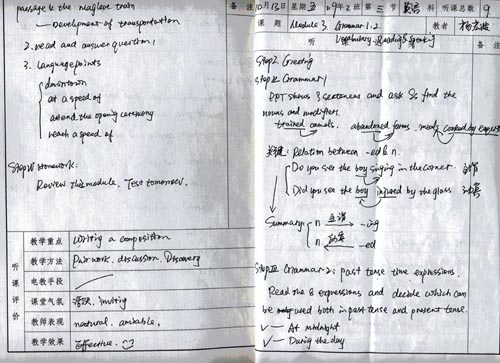 passage & the maglev train
— Development of transportation
2. read and answer question 1
3. language points
downtown
at a speed of
attend the opening ceremony
reach a speed of
Step IV Homework:
Review this module. Test tomorrow.
听课评价
教学重点 Writing a composition
教学方法 Pair work, discussion, Discovery
电教手段
课堂气氛 活跃, inviting
教师表现 natural, amiable,
教学效果 Effective.
备注 10月13日 星期五 初9年2班 第三节 英语科 听课总数 9
课题 Module 3 Grammar 1.2 教者
听 Vocabulary. Reading & speaking 备注
Step I. Greeting
Step II. Grammar 1
PPT shows 3 sentences and ask Ss find the
nouns and modifiers
trained camels. abandoned farms. meals cooked by experts
关键: Relation between -ed & n.
Do you see the boy singing in the corner
Did you see the boy injured by the glass
Summary: n 主谓 -ing
n 动宾 -ed
Step III Grammar 2: past tense time expressions.
Read the 8 expressions and decide which can
be used both in past tense and present tense.
✓ — At midnight
✓ — During the day